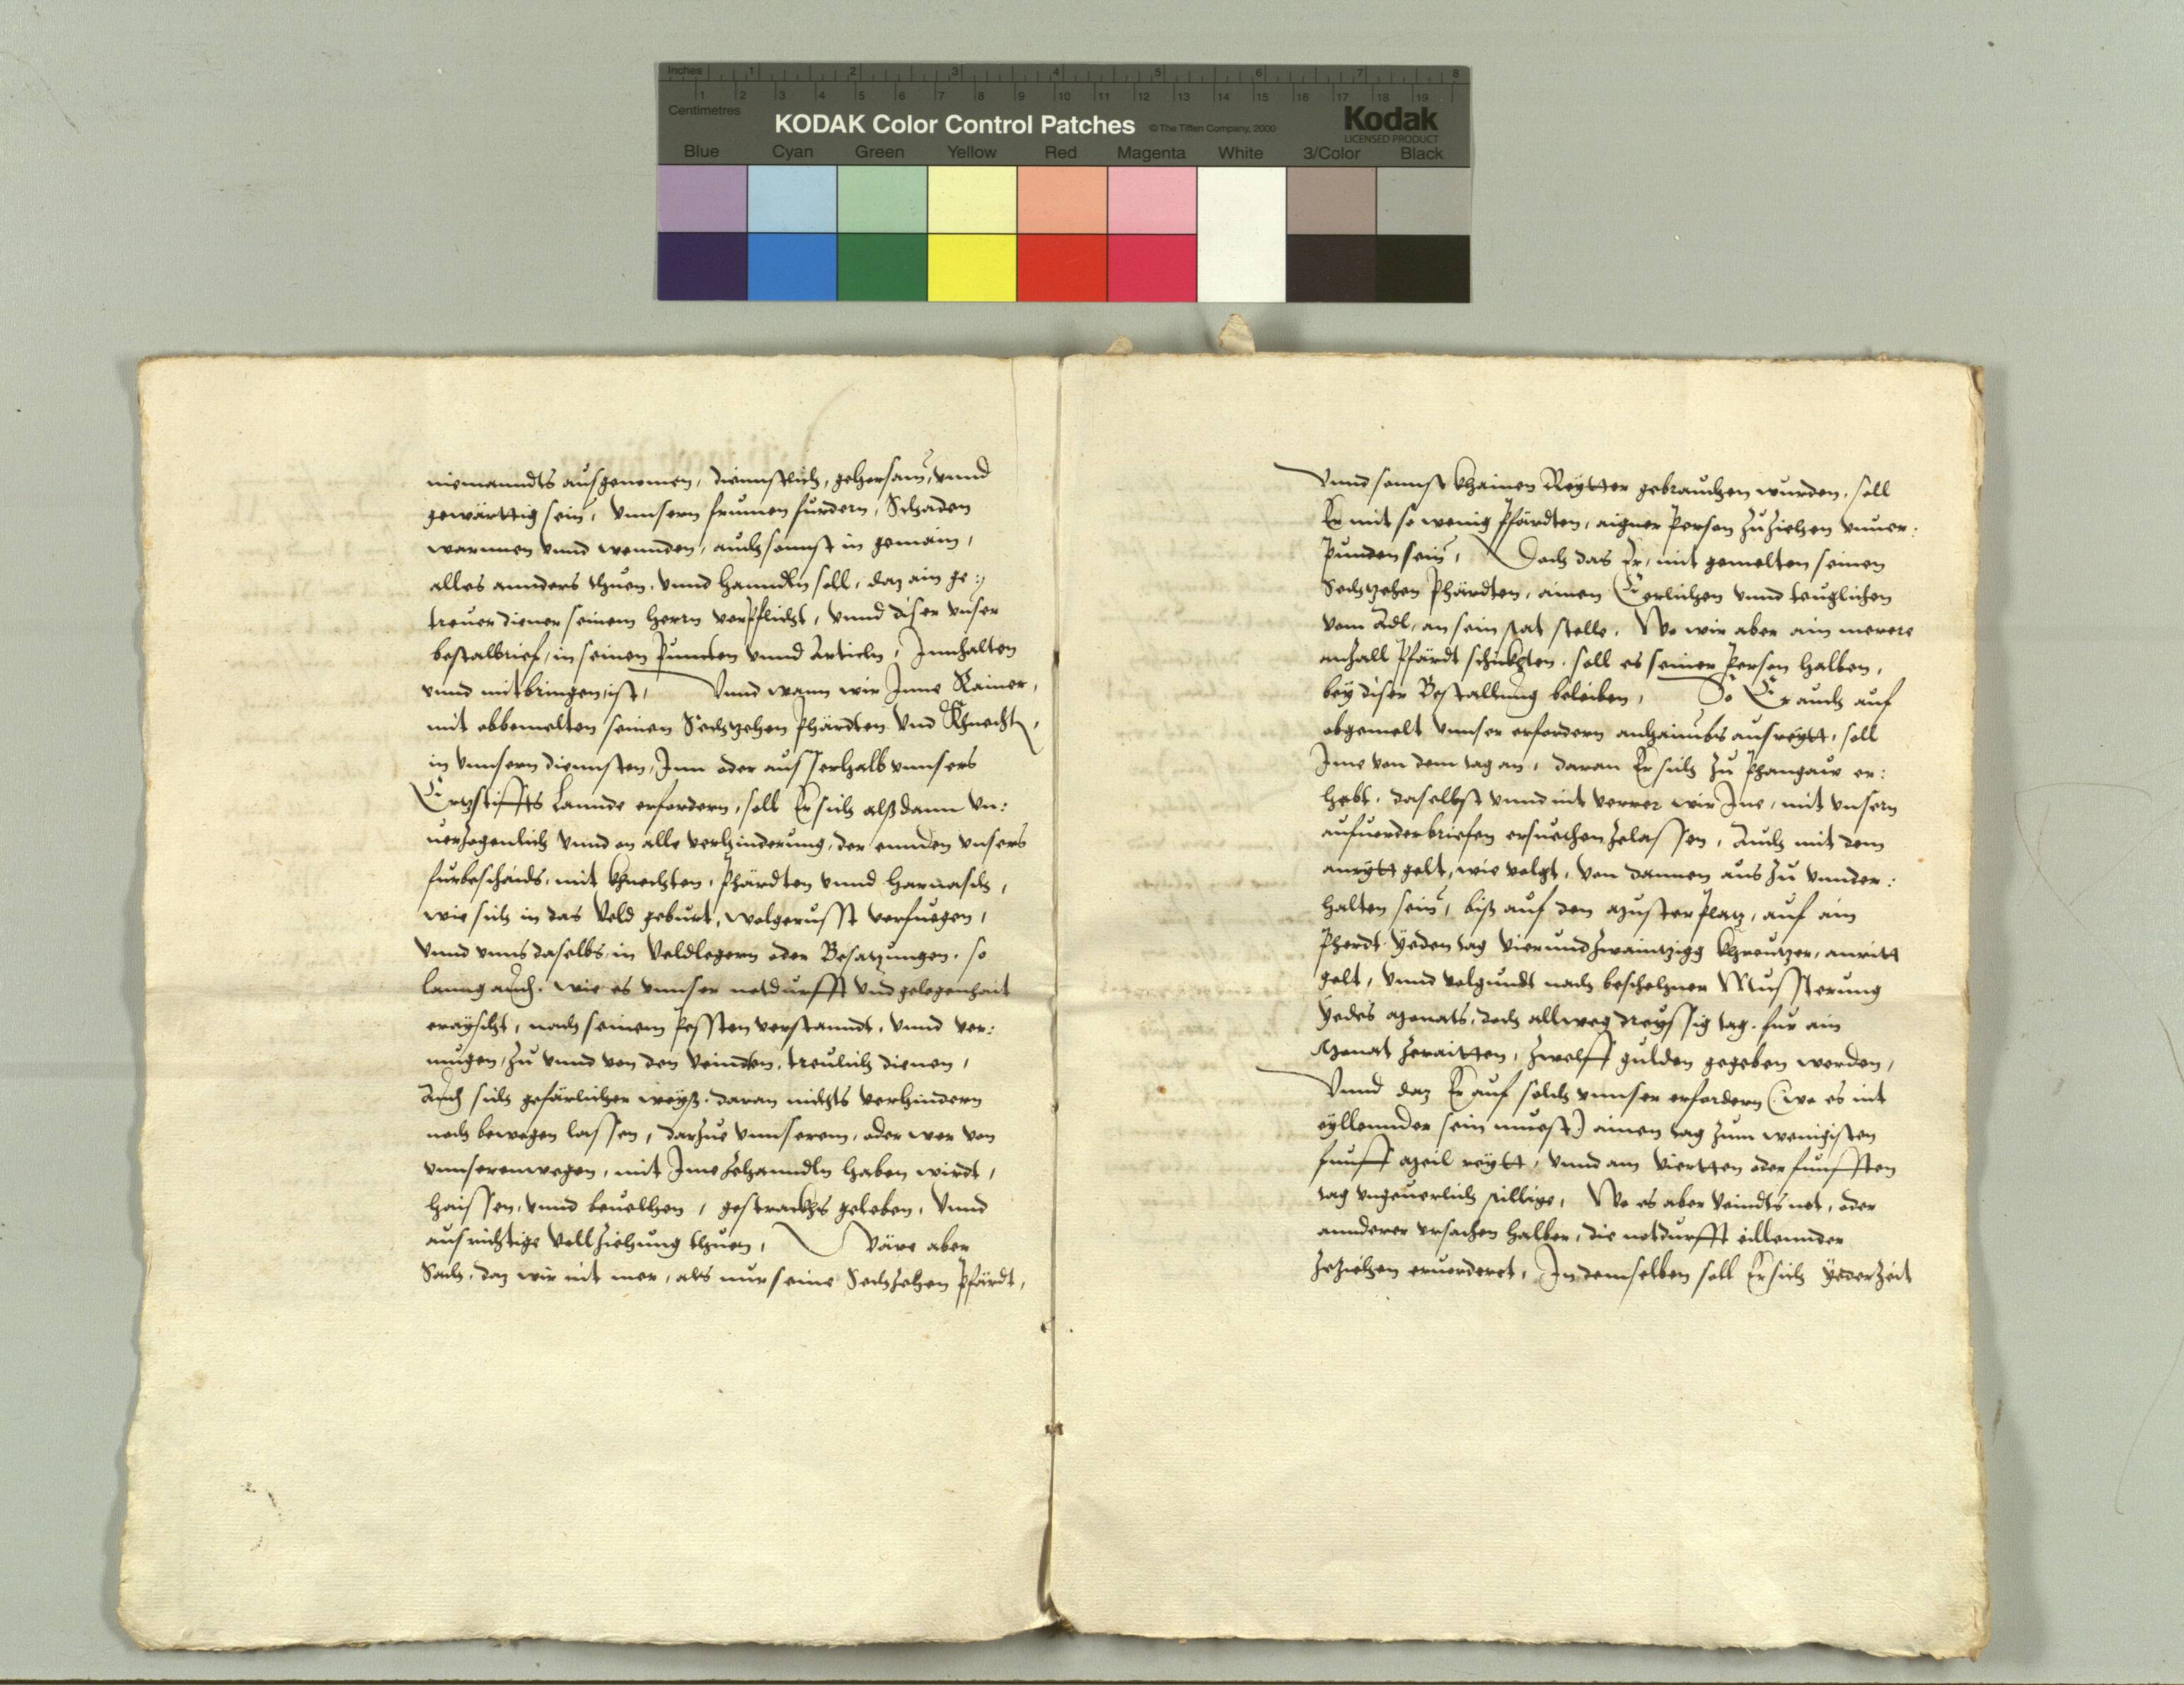 Inches 1 2 3 4 5 6 7 8
1 2 3 4 5 6 7 8 9 10 11 12 13 14 15 16 17 18 19
Centimetres
KODAK Color Control Patches © The Tiffen Company, 2000 Kodak
LICENSED PRODUCT
Blue Cyan Green Yellow Red Magenta White 3/Color Black
niemanndts ausgenomen, diennstlich, gehorsam, vnnd
gewärttig sein, vnnsern frumen furdern, Schaden
warnnen vnnd wennden, auch sonnst in gemain,
alles annders thuen, vnnd hanndln soll, daz ain ge:
treuer diener seinem herrn verpflicht, vnnd diser vnser
bestalbrief, in seinen Puncten vnnd Articln, Innhalten
vnnd mitbringen, ist, Vnnd wann wir Inne Rainer,
mit obbemelten seinen Sechtzehen Phärdten vnd Khnecht,
in vnnsern diennsten, Inn oder ausserhalb vnnsers
Ertzstiffts Lannde erfordern, soll Er sich alßdann vn:
uerzogenlich vnnd on alle verhinderung, der ennden vnsers
furbeschaids, mit khnechten, Phärdten vnnd harnasch,
wie sich in das Veld geburt, wolgerusst verfuegen,
vnnd vnns daselbs in Veldlegern oder Besatzungen, so
lanng auch, wie es vnnser notdurfft vnd gelegenhait
erayscht, nach seinem pessten verstanndt, vnnd ver:
mugen, zu vnnd von den Veinden, treulich dienen,
Auch sich gefärlicher weyß, daran nichts verhindern
noch bewegen lassen, darzue vnnserm, oder wer von
vnnserenwegen, mit Ime zehanndln haben wirdt,
haissen, vnnd beuelhen, gestrackhs geleben, vnnd
aufrichtige Volziehung thuen, Wäre aber
Sach, daz wir nit mer, als nur seine Sechzehen Pfärdt,
Vnnd sonnst khainen Reytter gebrauchen wurden, soll
Er mit so wenig Pfärdten, aigner Person zuziehen vnuer:
punden sein, Doch das Er, mit gemelten seinen
Sechtzehen Phärdten, ainen Eerlichen vnnd teuglichen
vom Adl, an sein stat stelle, Wo wir aber ain merere
anzall Pfärdt schickhten, soll es seiner Person halben,
bey diser Bestallung beleiben, So Er auch auf
obgemelt vnnser erfordern anhaimbs ausreytt, soll
Ime von dem tag an, daran Er sich zu Phangaw er:
hebt, daselbst vnnd nit verrer wir Ine, mit vnsern
aufuorderbriefen ersuechen zelassen, Auch mit dem
anrytt gelt, wie volgt, von dannen aus zu vnnder:
halten sein, biß auf den Musterplatz, auf ain
Pherdt yeden tag Vierundzwaintzigg khreutzer, anritt
gelt, vnnd volgundt nach beschehner Mussterung
yedes Monats, doch allweg dreyssig tag, fur ain
Monat zeraitten, zwelff gulden gegeben werden,
Vnnd daz Er auf solch vnnser erfordern (wo es nit
eyllennder sein muest) ainen tag zum wenigisten
funff Meil reytt, vnnd am Viertten oder funfften
tag vngeuerlich stillige, Wo es aber Veindts not, oder
annderer vrsachen halber, die notdurfft eillennder
zeziehen eruorderet, In demselben soll Er sich yederzeit